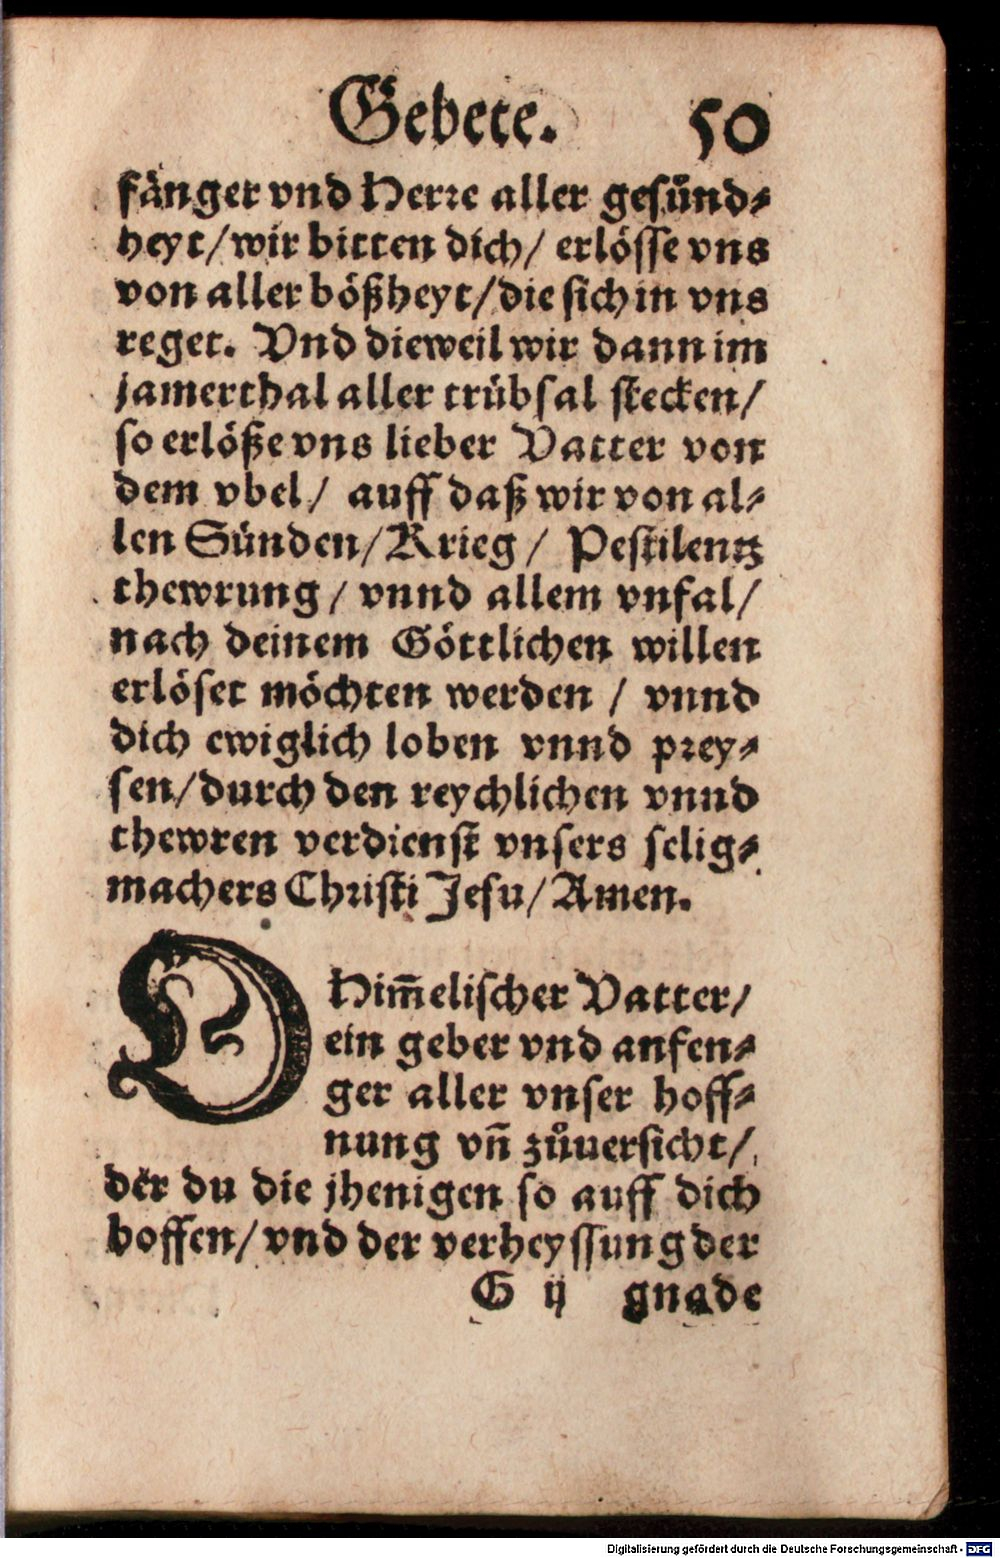 Gebete. 50
fänger vnd Herre aller gesünd⸗
heyt/ wir bitten dich/ erlösse vns
von aller bößheyt/ die sich in vns
reget. Vnd dieweil wir dann im
jamerthal aller trübsal stecken/
so erlöße vns lieber Vatter von
dem vbel/ auff daß wir von al⸗
len Sünden/ Krieg/ Pestilentz
thewrung/ vnnd allem vnfal/
nach deinem Göttlichen willen
erlöset möchten werden/ vnnd
dich ewiglich loben vnnd prey⸗
sen/ durch den reychlichen vnnd
thewren verdienst vnsers selig⸗
machers Christi Jesu/ Amen.
O Him̃elischer Vatter/
ein geber vnd anfen⸗
ger aller vnser hoff⸗
nung vñ zůuersicht/
der du die jhenigen so auff dich
hoffen/ vnd der verheyssung der
G ij gnade
Digitalisierung gefördert durch die Deutsche Forschungsgemeinschaft - DFG